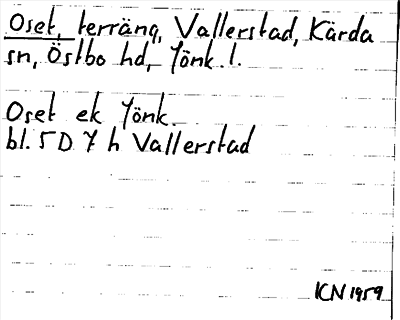 Oset, terräng, Vallerstad, Kärda
sn, Östbo hd, Jönk. l.
Oset ek Jönk.
bl. 5 D 7 h Vallerstad
ICN 1959